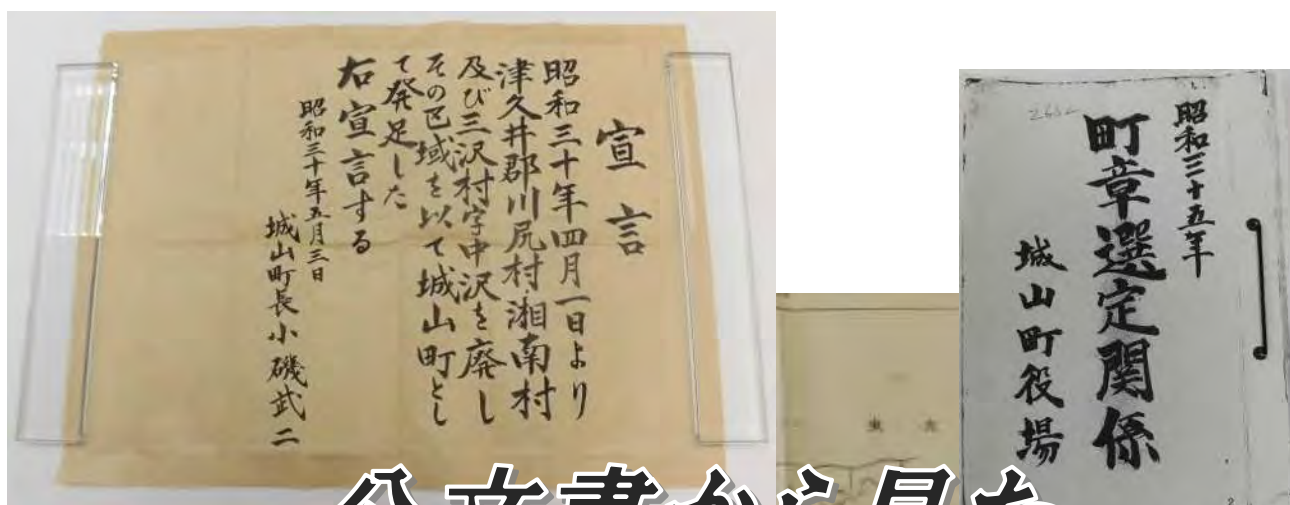 宣言
昭和三十年四月一日より
津久井郡川尻村、湘南村
及び三沢村字中沢を廃し
その区域を以て城山町とし
て発足した
右宣言する
昭和三十年五月三日
城山町長小磯武二
昭和三十五年
町章選定関係
城山町役場
公文書から見た